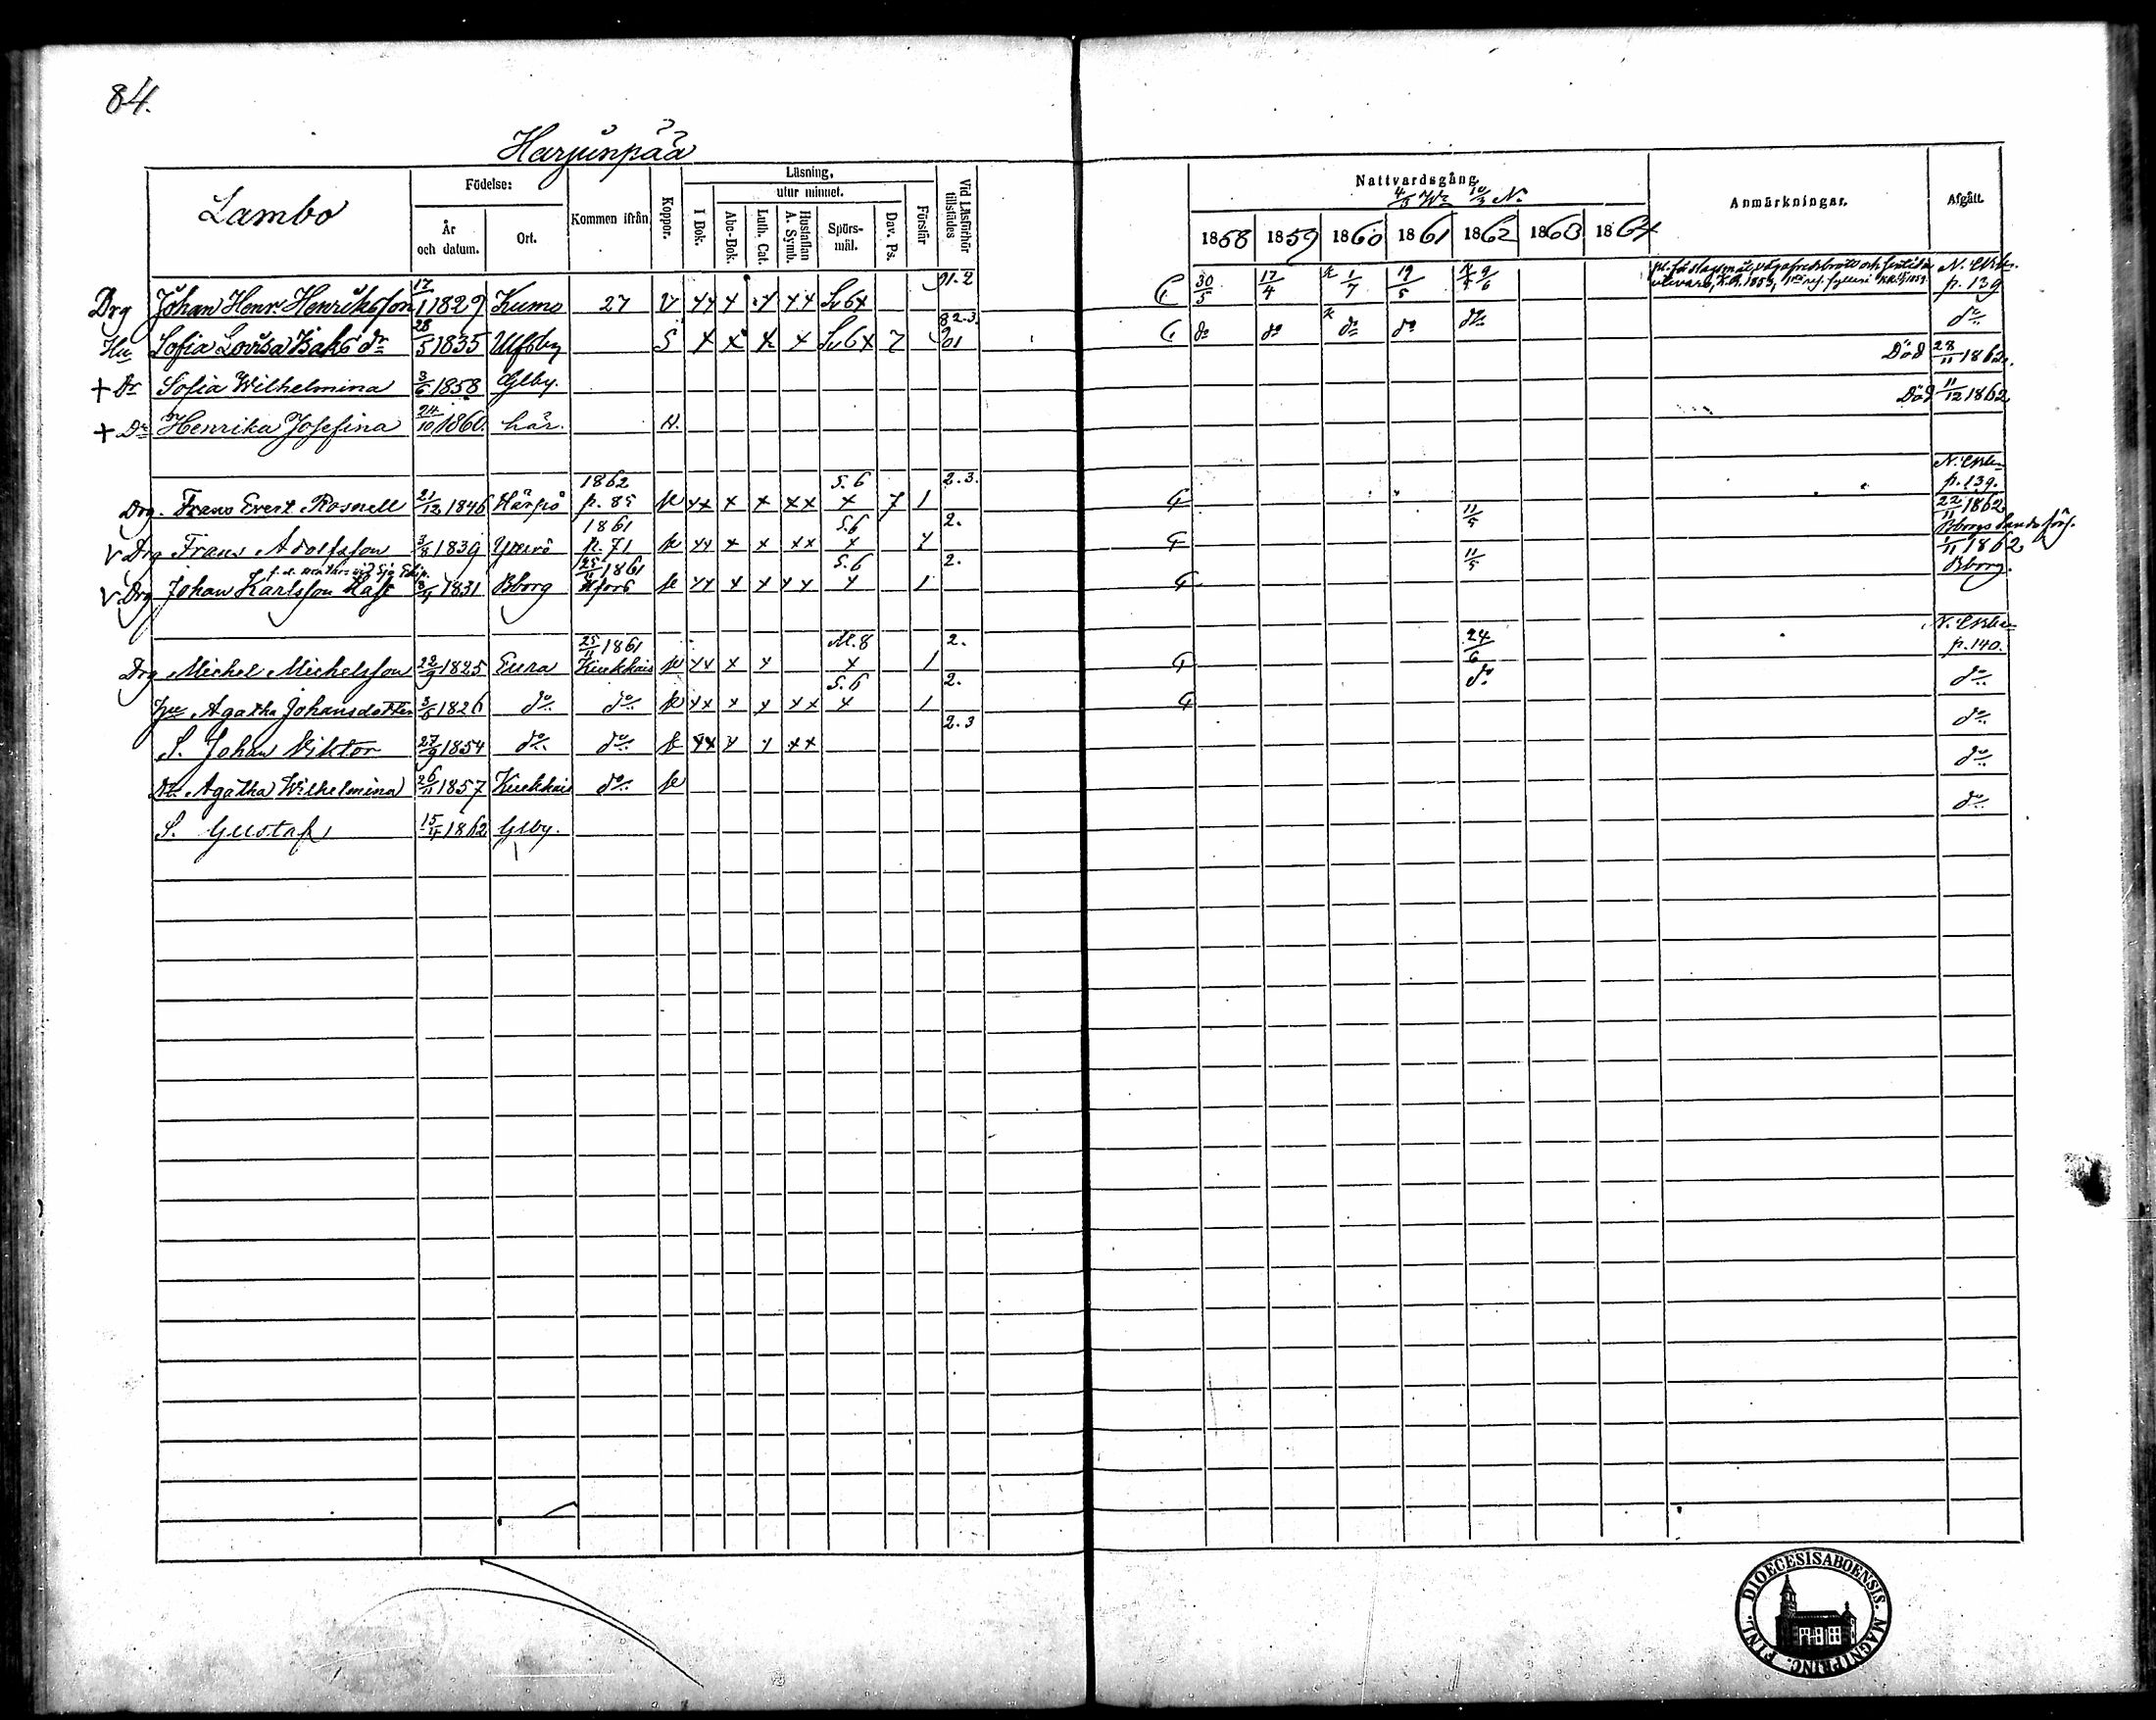 84.
Harjunpää
Lambo
Födelse:
År och datum.
Ort.
Kommen ifrån
Koppor.
Läsning,
I Bok.
utur minnet.
Abc-Bok.
Luth. Cat.
Hustaflan A. Symb.
Spörs-mål.
Dav. Ps.
Förstår
Vid Läsförhör tillstädes
Nattvardsgång.
1858 1859 1860 1861 1862 1863 1864
Anmärkningar.
Afgått.
Drg Johan Henr. Henriksson 17/1 1829 Kumo 27 V xx x x xx Sv 6x 91.2 30/5 17/4 1/7 19/5 9/6 p. 139
Hu Sofia Lovisa Isaks dr 28/5 1835 Ulfsby S x x x x Sv 6x 7 82.3. 91 do do do do do do
+ Dr Sofia Wilhelmina 3/6 1858 Glby. Död 28/11 1862.
+ Dr Henrika Josefina 24/10 1860. här. H. Död 11/12 1862
Drg. Frans Evert Rosnell 21/12 1846 1862 p. 85 xx x x xx S. 6 x 7 1 2.3. p. 139.
v Drg Frans Adolfsson 3/8 1839 1861 p. 71 xx x x xx S. 6 x 2. 11/5 22/11 1862
v Drg Johan Karlsson 1831 Bborg 25/11 1861 Hfors xx x x xx S. 6 x 1 2. 11/5 1/11 1862 Bborg.
Drg Michel Michelsson 22/9 1825 Eura 25/11 1861 Kiukkais xx x x M. 8 x 1 2. 24/6 p. 140.
Hu Agatha Johansdotter 1826 do do xx x x xx S. 6 x 1 2. do do
S. Johan Viktor 27/9 1854 do do xx x x xx 2.3 do
Dr. Agatha Wilhelmina 26/11 1857 Kiukkais do do
S. Gustaf 15/4 1862 Glby. do
DIOECESIS ABOENSIS. MAGNI PRINC. FINL.